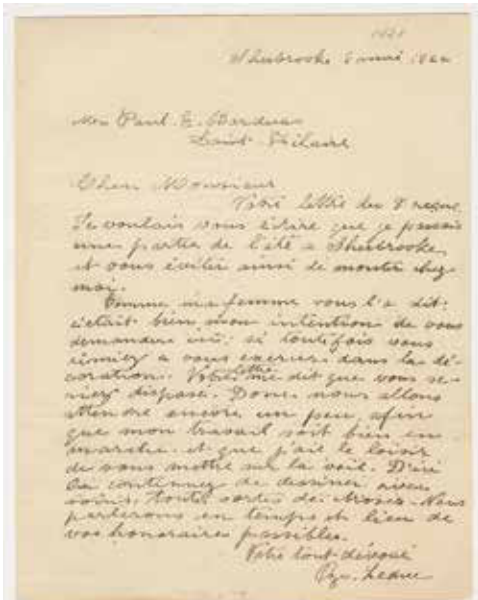 Sherbrooke 8 mai 192
Mon Paul. E. Borduas
Saint-Hilaire
Cher Monsieur
Votre lettre du 8 reçue.
Je voulais vous écrire que je passais
une partie de l'été à Sherbrooke,
et vous éviter ainsi de monter chez
moi.
Comme ma femme vous l'a dit:
c'était bien mon intention de vous
demander ici: si toutefois vous
teniez à vous exercer dans la dé-
coration. Votre lettre me dit que vous se-
riez disposé. Donc nous allons
attendre encore un peu, afin
que mon travail soit bien en
marche. et que j'aie le loisir
de vous mettre sur la voie. D'ici
là continuez de dessiner avec
soins, toutes sortes de choses. Nous
parlerons en temps et lieu de
vos honoraires possibles.
Votre tout dévoué
Oz. Leduc